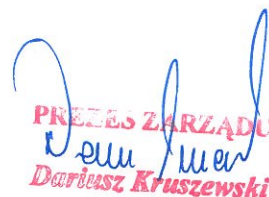 PREZES ZARZĄDU
Dariusz Kruszewski